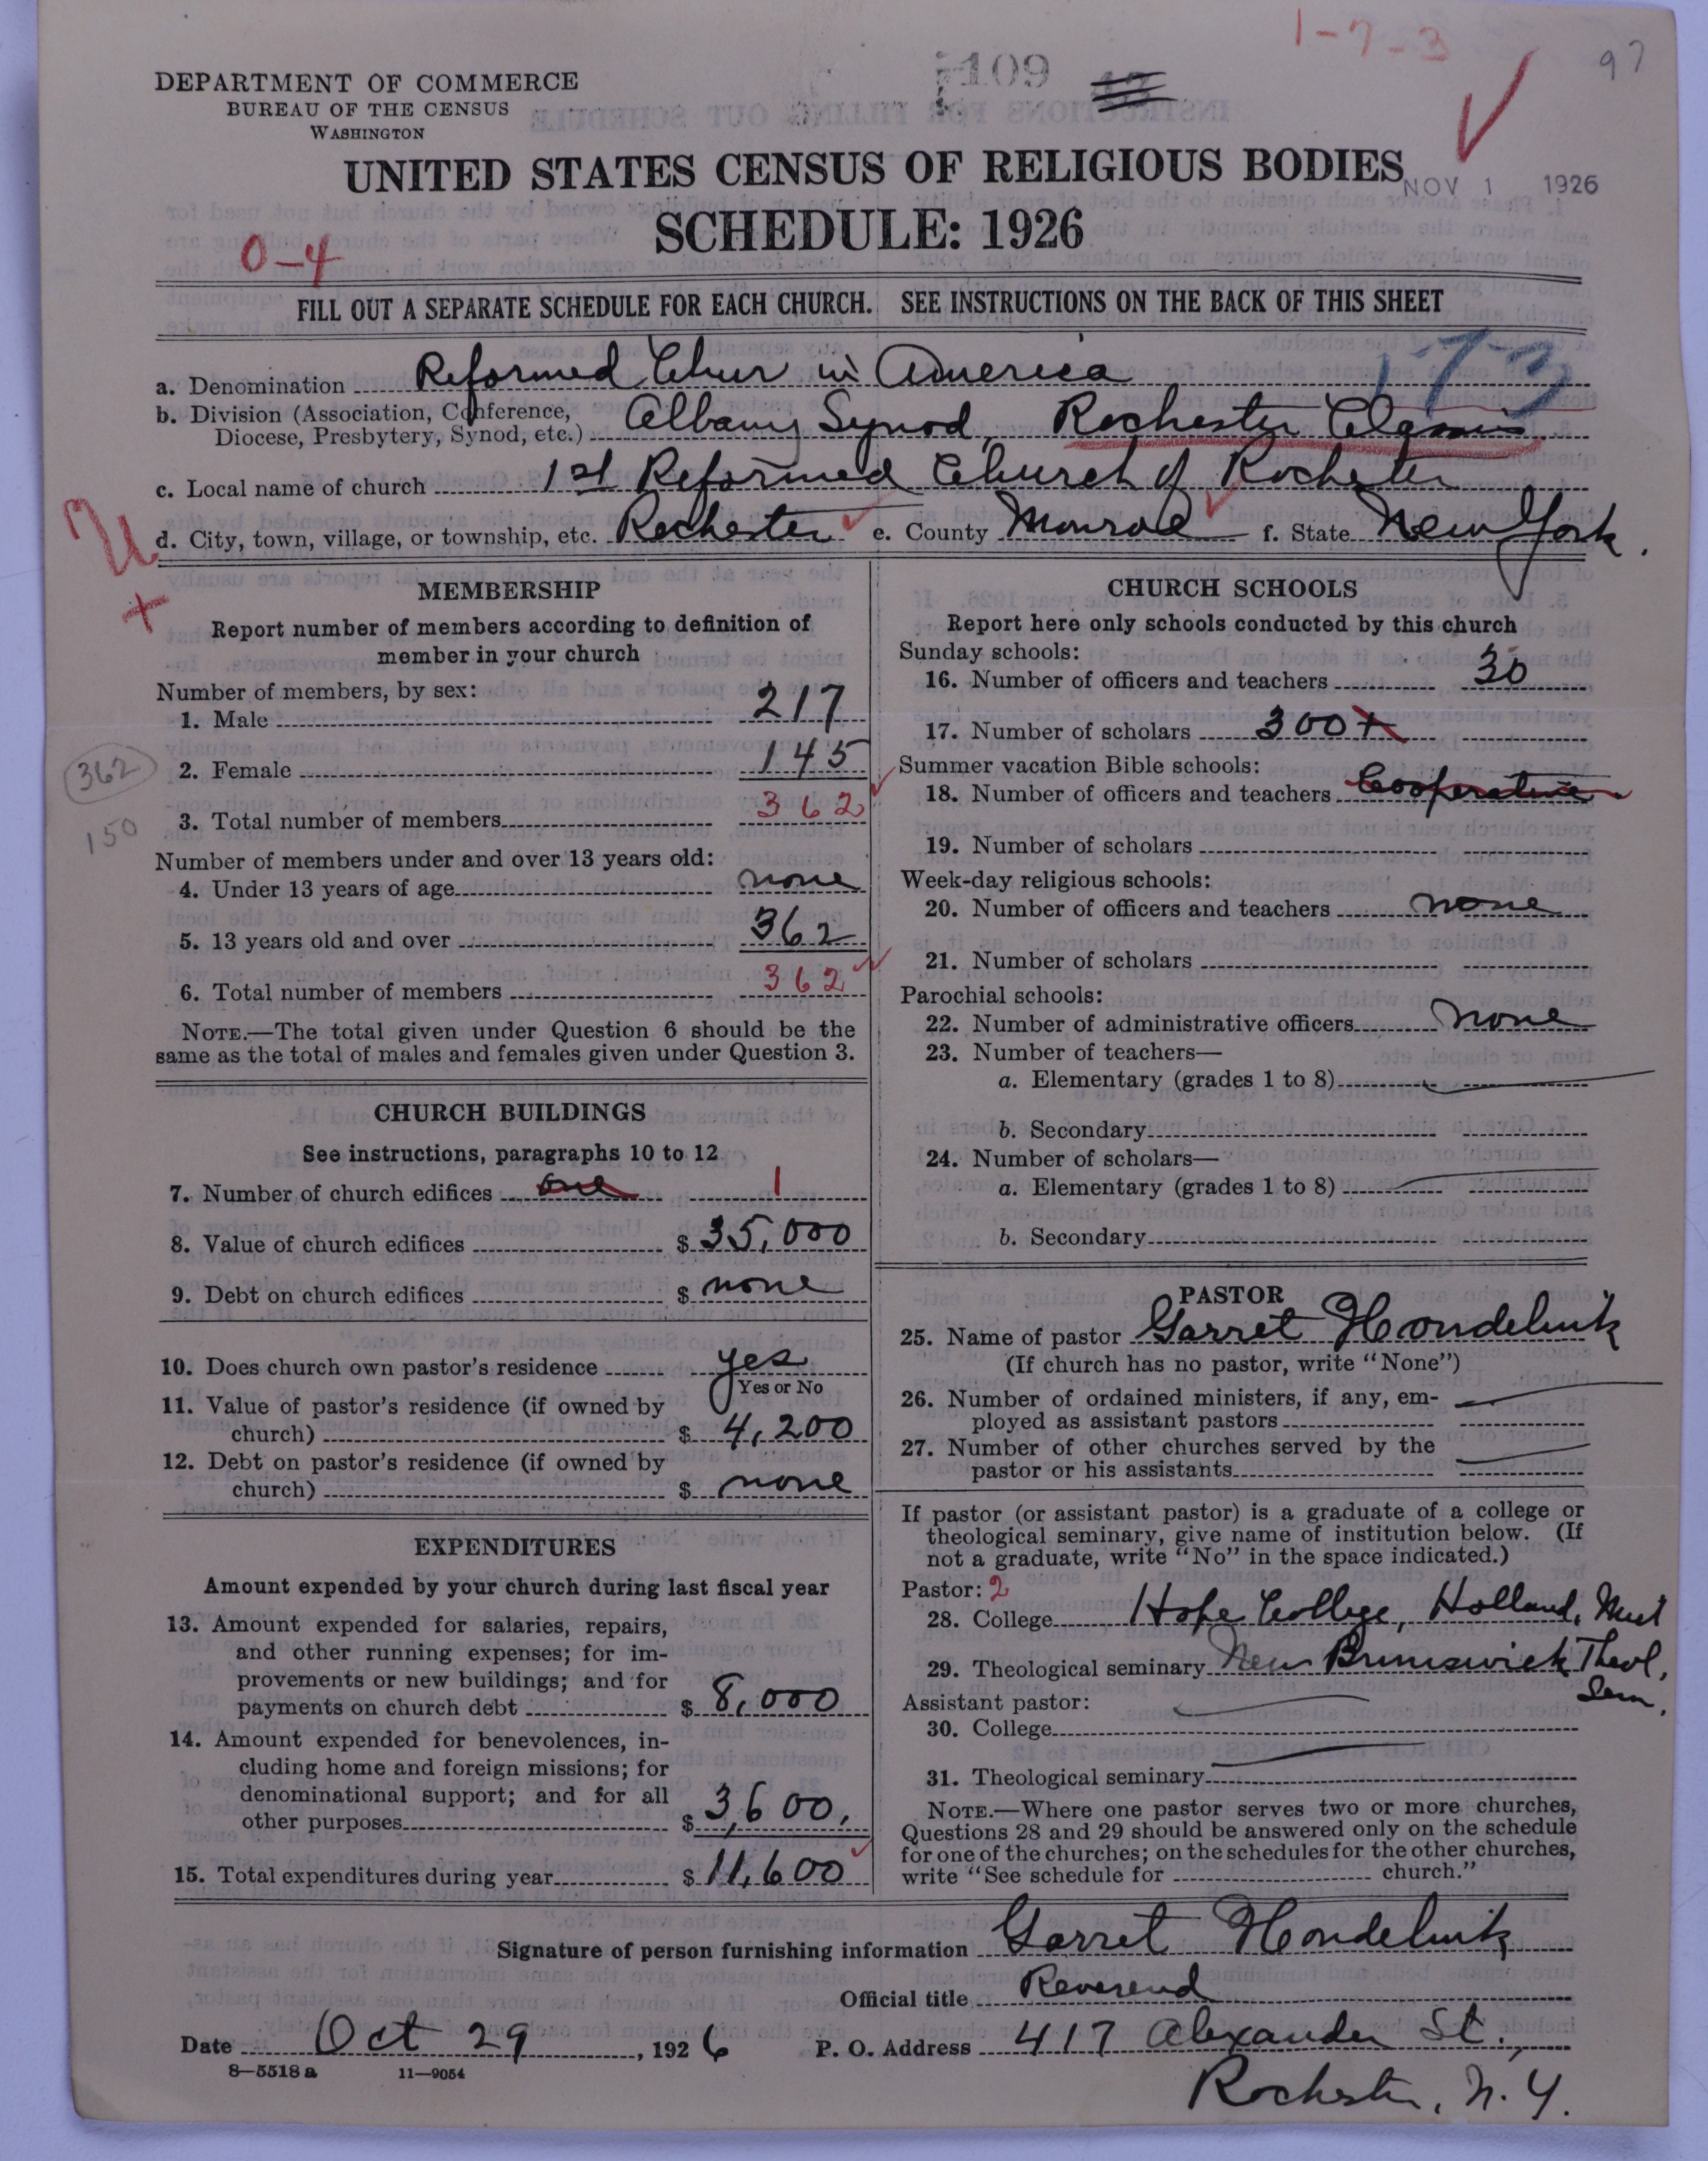 1-7-3
97
109
DEPARTMENT OF COMMERCE
BUREAU OF THE CENSUS
WASHINGTON
UNITED STATES CENSUS OF RELIGIOUS BODIES
NOV 1 1926
SCHEDULE: 1926
0-4
FILL OUT A SEPARATE SCHEDULE FOR EACH CHURCH. SEE INSTRUCTIONS ON THE BACK OF THIS SHEET
1-73
a. Denomination Reformed Chur in America
b. Division (Association, Conference, Diocese, Presbytery, Synod, etc.) Albany Synod, Rochester Classis
c. Local name of church 1st Reformed Church of Rochester
d. City, town, village, or township, etc. Rochester e. County Monroe f. State New York.
U
+
MEMBERSHIP
Report number of members according to definition of
member in your church
Number of members, by sex:
1. Male 217
2. Female 145
362
3. Total number of members 362
150
Number of members under and over 13 years old:
4. Under 13 years of age none
5. 13 years old and over 362
6. Total number of members 362
NOTE.—The total given under Question 6 should be the
same as the total of males and females given under Question 3.
CHURCH BUILDINGS
See instructions, paragraphs 10 to 12
7. Number of church edifices one 1
8. Value of church edifices $ 35,000
9. Debt on church edifices $ none
10. Does church own pastor's residence yes
Yes or No
11. Value of pastor's residence (if owned by
church) $ 4,200
12. Debt on pastor's residence (if owned by
church) $ none
EXPENDITURES
Amount expended by your church during last fiscal year
13. Amount expended for salaries, repairs,
and other running expenses; for im-
provements or new buildings; and for
payments on church debt $ 8,000
14. Amount expended for benevolences, in-
cluding home and foreign missions; for
denominational support; and for all
other purposes $ 3,600.
15. Total expenditures during year $ 11,600
CHURCH SCHOOLS
Report here only schools conducted by this church
Sunday schools:
16. Number of officers and teachers 30
17. Number of scholars 300+
Summer vacation Bible schools:
18. Number of officers and teachers Cooperative
19. Number of scholars
Week-day religious schools:
20. Number of officers and teachers none
21. Number of scholars
Parochial schools:
22. Number of administrative officers None
23. Number of teachers—
a. Elementary (grades 1 to 8)
b. Secondary
24. Number of scholars—
a. Elementary (grades 1 to 8)
b. Secondary
PASTOR
25. Name of pastor Garret Hondelink
(If church has no pastor, write "None")
26. Number of ordained ministers, if any, em-
ployed as assistant pastors
27. Number of other churches served by the
pastor or his assistants
If pastor (or assistant pastor) is a graduate of a college or
theological seminary, give name of institution below. (If
not a graduate, write "No" in the space indicated.)
Pastor: 2
28. College Hope College, Holland,
29. Theological seminary New Brunswick Theol. Sem.
Assistant pastor:
30. College
31. Theological seminary
NOTE.—Where one pastor serves two or more churches,
Questions 28 and 29 should be answered only on the schedule
for one of the churches; on the schedules for the other churches,
write "See schedule for church."
Signature of person furnishing information Garret Hondelink
Official title Reverend
Date Oct 29, 1926 P. O. Address 417 Alexander St.,
8-5518a 11-9054
Rochester, N.Y.